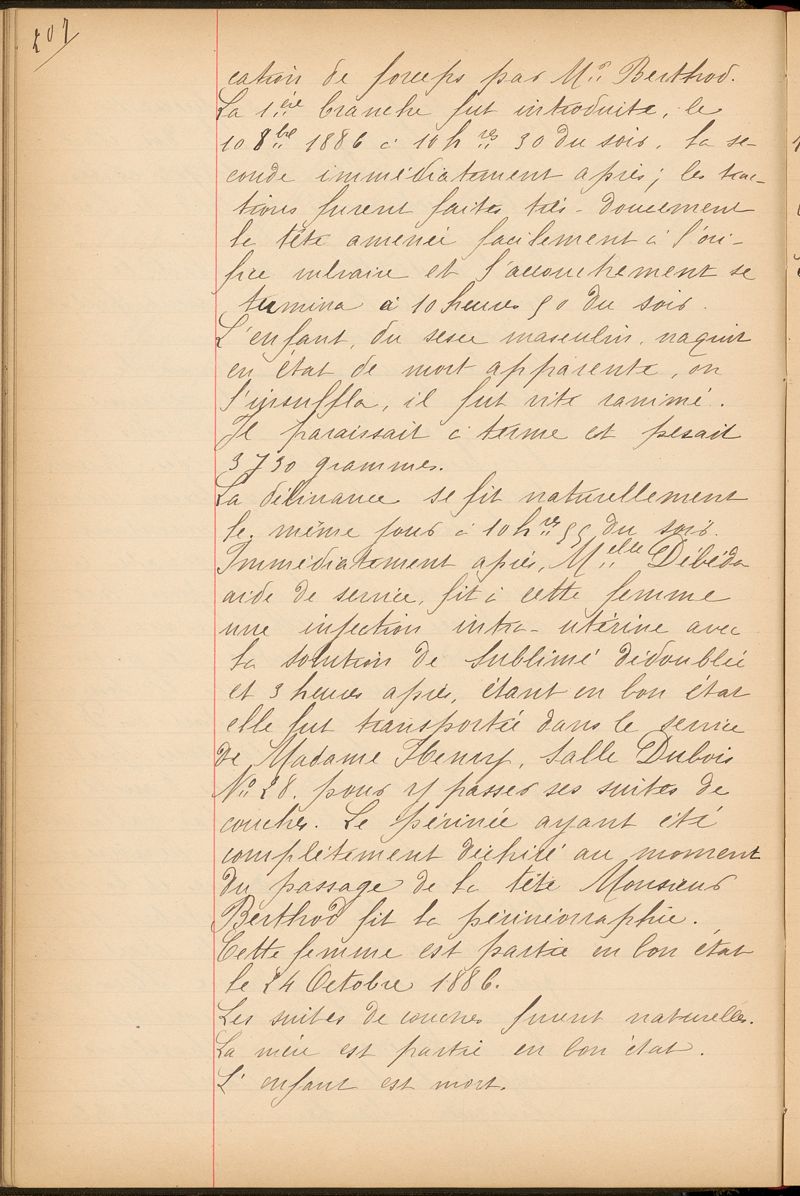 207
cation de forceps par Mr. Berthod.
La 1ère branche fut introduite, le
10 8bre 1886 à 10 hres 30 du soir, la se-
conde immédiatement après; les trac-
tions furent faites très-doucement
la tête amenée facilement à l'ori-
fice vulvaire et l'accouchement se
termina à 10 heures 50 du soir.
L'enfant, du sexe masculin, naquit
en état de mort apparente, on
l'insuffla, il fut vite ranimé.
Il paraissait à terme et pesait
3730 grammes.
La délivrance se fit naturellement
le même jour à 10 hres 55 du soir.
Immédiatement après, Melle Débéda
aide de service, fit à cette femme
une injection intra-utérine avec
la solution de sublimé dédoublée
et 3 heures après, étant en bon état
elle fut transportée dans le service
de Madame Henry, Salle Dubois
No 28. pour y passer ses suites de
couches. Le périnée ayant été
complètement déchiré au moment
du passage de la tête Monsieur
Berthod fit la périnéorraphie.
Cette femme est partie en bon état
le 24 Octobre 1886.
Les suites de couches furent naturelles.
La mère est partie en bon état.
L'enfant est mort.